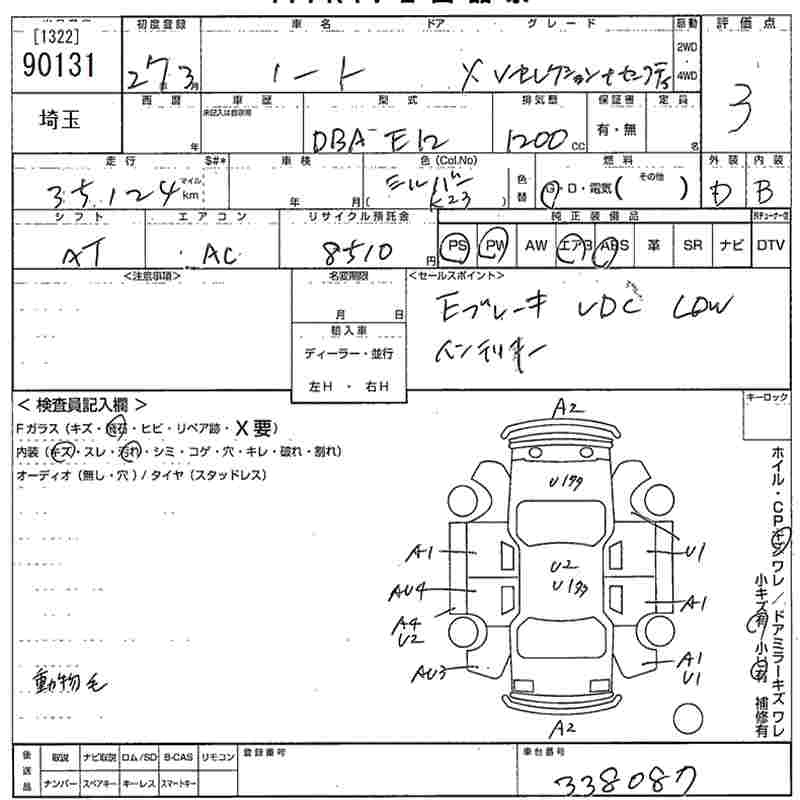 [1322]
90131
初度登録
27年3月
車名
ノート
ドア
グレード
X Vセレクション+セーフティ
駆動
2WD
4WD
評価点
3
埼玉
西暦
年
車歴
未記入は自家用
型式
DBA-E12
排気量
1200cc
保証書
有・無
定員
名
走行
35,124
マイル
km
S#*
車検
年 月
色(Col.No)
シルバー
(K23)
色替
燃料
G・D・電気( その他 )
外装
D
内装
B
シフト
AT
エアコン
AC
リサイクル預託金
8510円
純正装備品
PS PW AW エアB ABS 革 SR ナビ
DTV
<注意事項>
名変期限
月 日
輸入車
ディーラー・並行
左H・右H
<セールスポイント>
Eブレーキ VDC LOW
インテリキー
キーロック
<検査員記入欄>
Fガラス(キズ・飛石・ヒビ・リペア跡・X要)
内装(キズ・スレ・汚れ・シミ・コゲ・穴・キレ・破れ・割れ)
オーディオ(無し・穴)/タイヤ(スタッドレス)
A2
U1
A1
U1
U2
U1
AU4
A1
A4
U2
AU3
A1
U1
A2
動物毛
ホイル・CPキズワレ/ドアミラーキズワレ
小キズ有・小凹有 補修有
後送品
取説 ナビ取説 ロム/SD B-CAS リモコン
ナンバー スペアキー キーレス スマートキー
登録番号
車台番号
338087